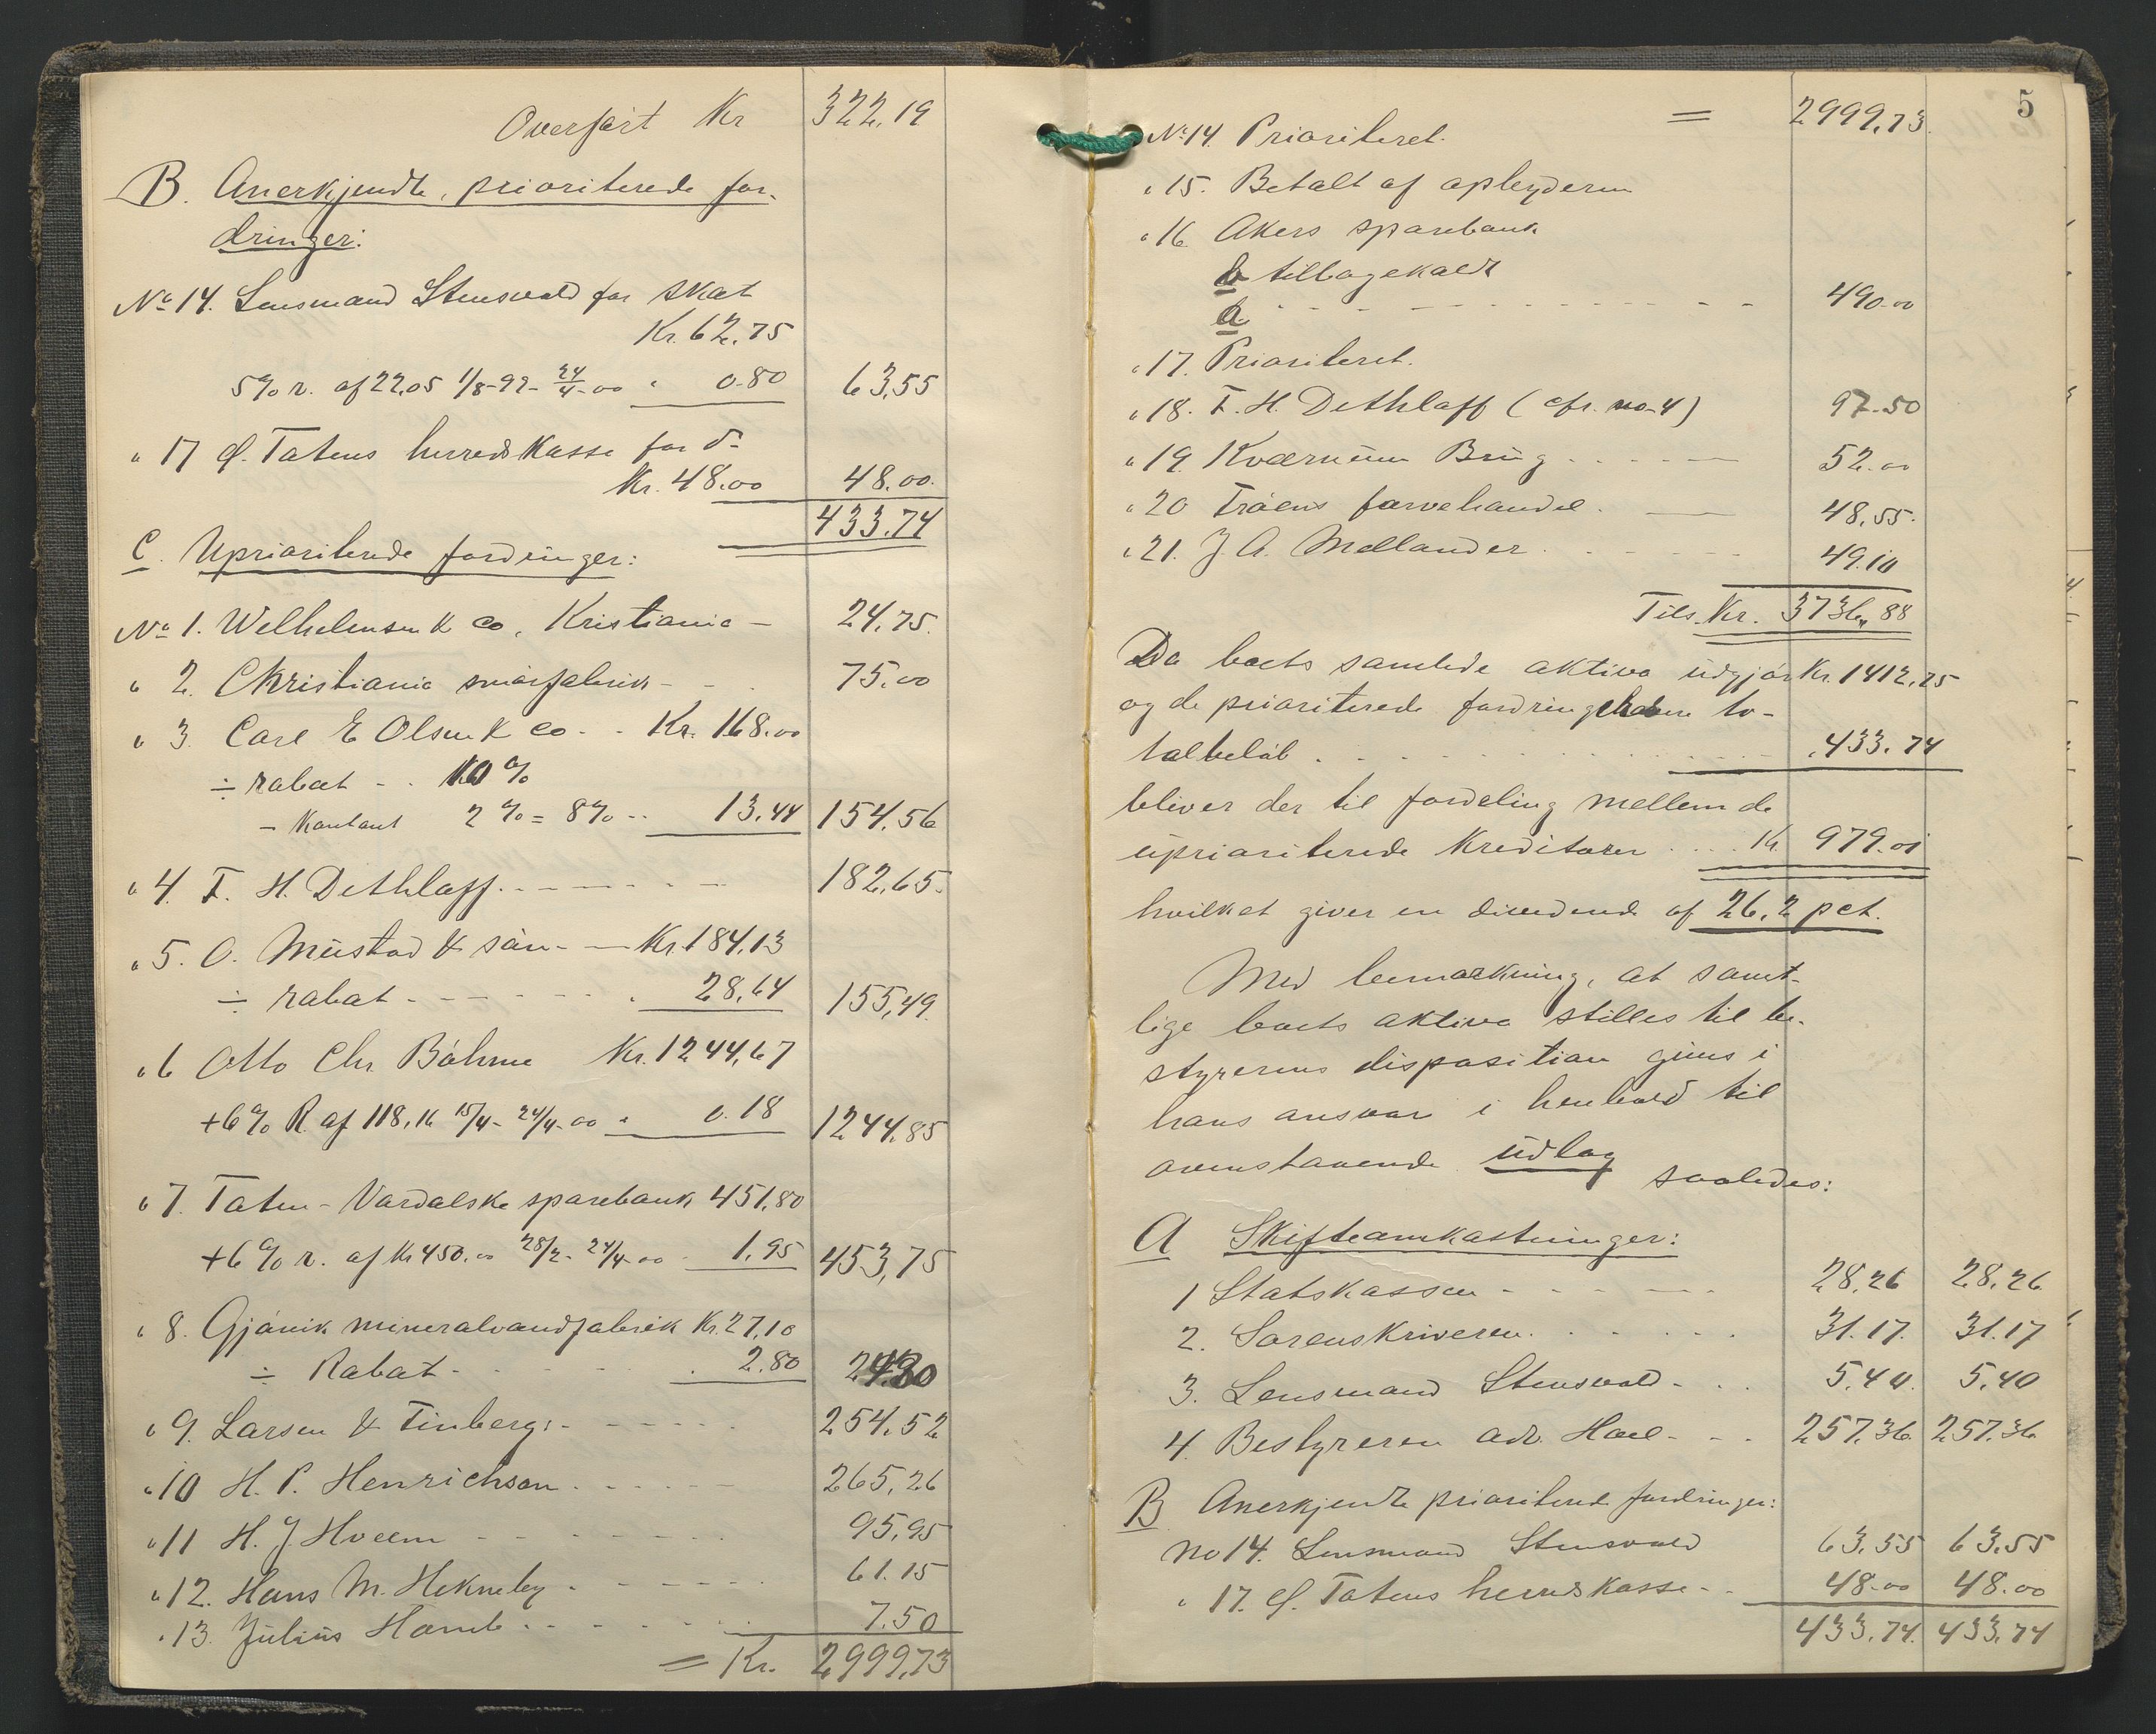 Overført Kr 322,19
B. Anerkjendte, prioriterede for-
dringer:
No 14. Lensmand Stensvold for skat
Kr. 62,75
5% r. af 22,05 1/8-99- 24/4-00 " 0.80 63,55
" 17 Ø. Totens herredskasse for do
Kr. 48.00 48.00.
433.74
C. Uprioriterede fordringer:
No 1. Wilhelmsen & Co, Kristiania - 24,75.
" 2. Christiania smørfabrik - - . 75.00
" 3. Carl E Olsen & Co - . Kr. 168.00
÷ rabat - . 10 %
- Kontant 2 % = 8% .. 13,44 154,56
" 4. F. H. Dethloff. - - - - - 182,65.
" 5. O. Mustad & søn - - Kr. 184,13
÷ rabat - - - - - . 28,64 155,49.
" 6 Otto Chr. Böhme Kr. 1244,67
+6% R. af 118,16 15/4 - 24/4-00 " 0.18 1244,85
" 7. Toten-Vardalske sparebank 451,80
+6 % r. af Kr 450.00 28/2 - 24/4-00 1,95 453,75
" 8. Gjøvik mineralvandfabrik Kr. 27,10
÷ Rabat - - - - . 2.80 24.30
" 9. Larsen & Tinberg: - - - - - 254,52
" 10 H. P. Henrichsen . - - - - 265,26
" 11 H. J. Hveem - - - - - 95,95
" 12. Hans M. Hekneby . - - - - 61.15
" 13. Julius Hamb . . - - - . 7.50
= Kr. 2999,73
5
= 2999,73.
No 14. Prioriteret.
" 15. Betalt af opbyderen
" 16 Akers sparebank
b tilbagekaldt
a. - - - - - - - - 490.00
" 17. Prioriteret.
" 18. F. H. Dethloff (cfr. no 4) 97.50
" 19. Kværnum Brug - - - - 52.00
" 20 Tråens farvehandel. - 48,55.
" 21. J. A. Mellander . - - - - - 49.10
Tils. Kr. 3736,88
Da boets samlede aktiva udgjør Kr. 1412,75
og de prioriterede fordringshavere to-
talbeløb . - - - - - - - - 433.74
bliver der til fordeling mellem de
uprioriterede kreditorer . . . . Kr. 979.01
hvilket giver en dividende af 26,2 pct.
Med bemærkning, at samt-
lige boets aktiva stilles til be-
styrerens disposition gives i
hans ansvar i henhold til
ovenstaaende udlæg saaledes:
A Skifteomkostninger:
1 Statskassen - - - - - - 28,26 28,26
2. Sorenskriveren. - - - - - 31.17. 31.17
3. Lensmand Stensvold - . . 5,40. 5,40
4. Bestyreren adv. Hoel - . - 257.36 257.36
B Anerkjendte prioriterede fordringer:
No 14. Lensmand Stensvold 63,55 63,55
" 17. Ø. Totens herredskasse - . 48.00 48.00
433,74. 433,74